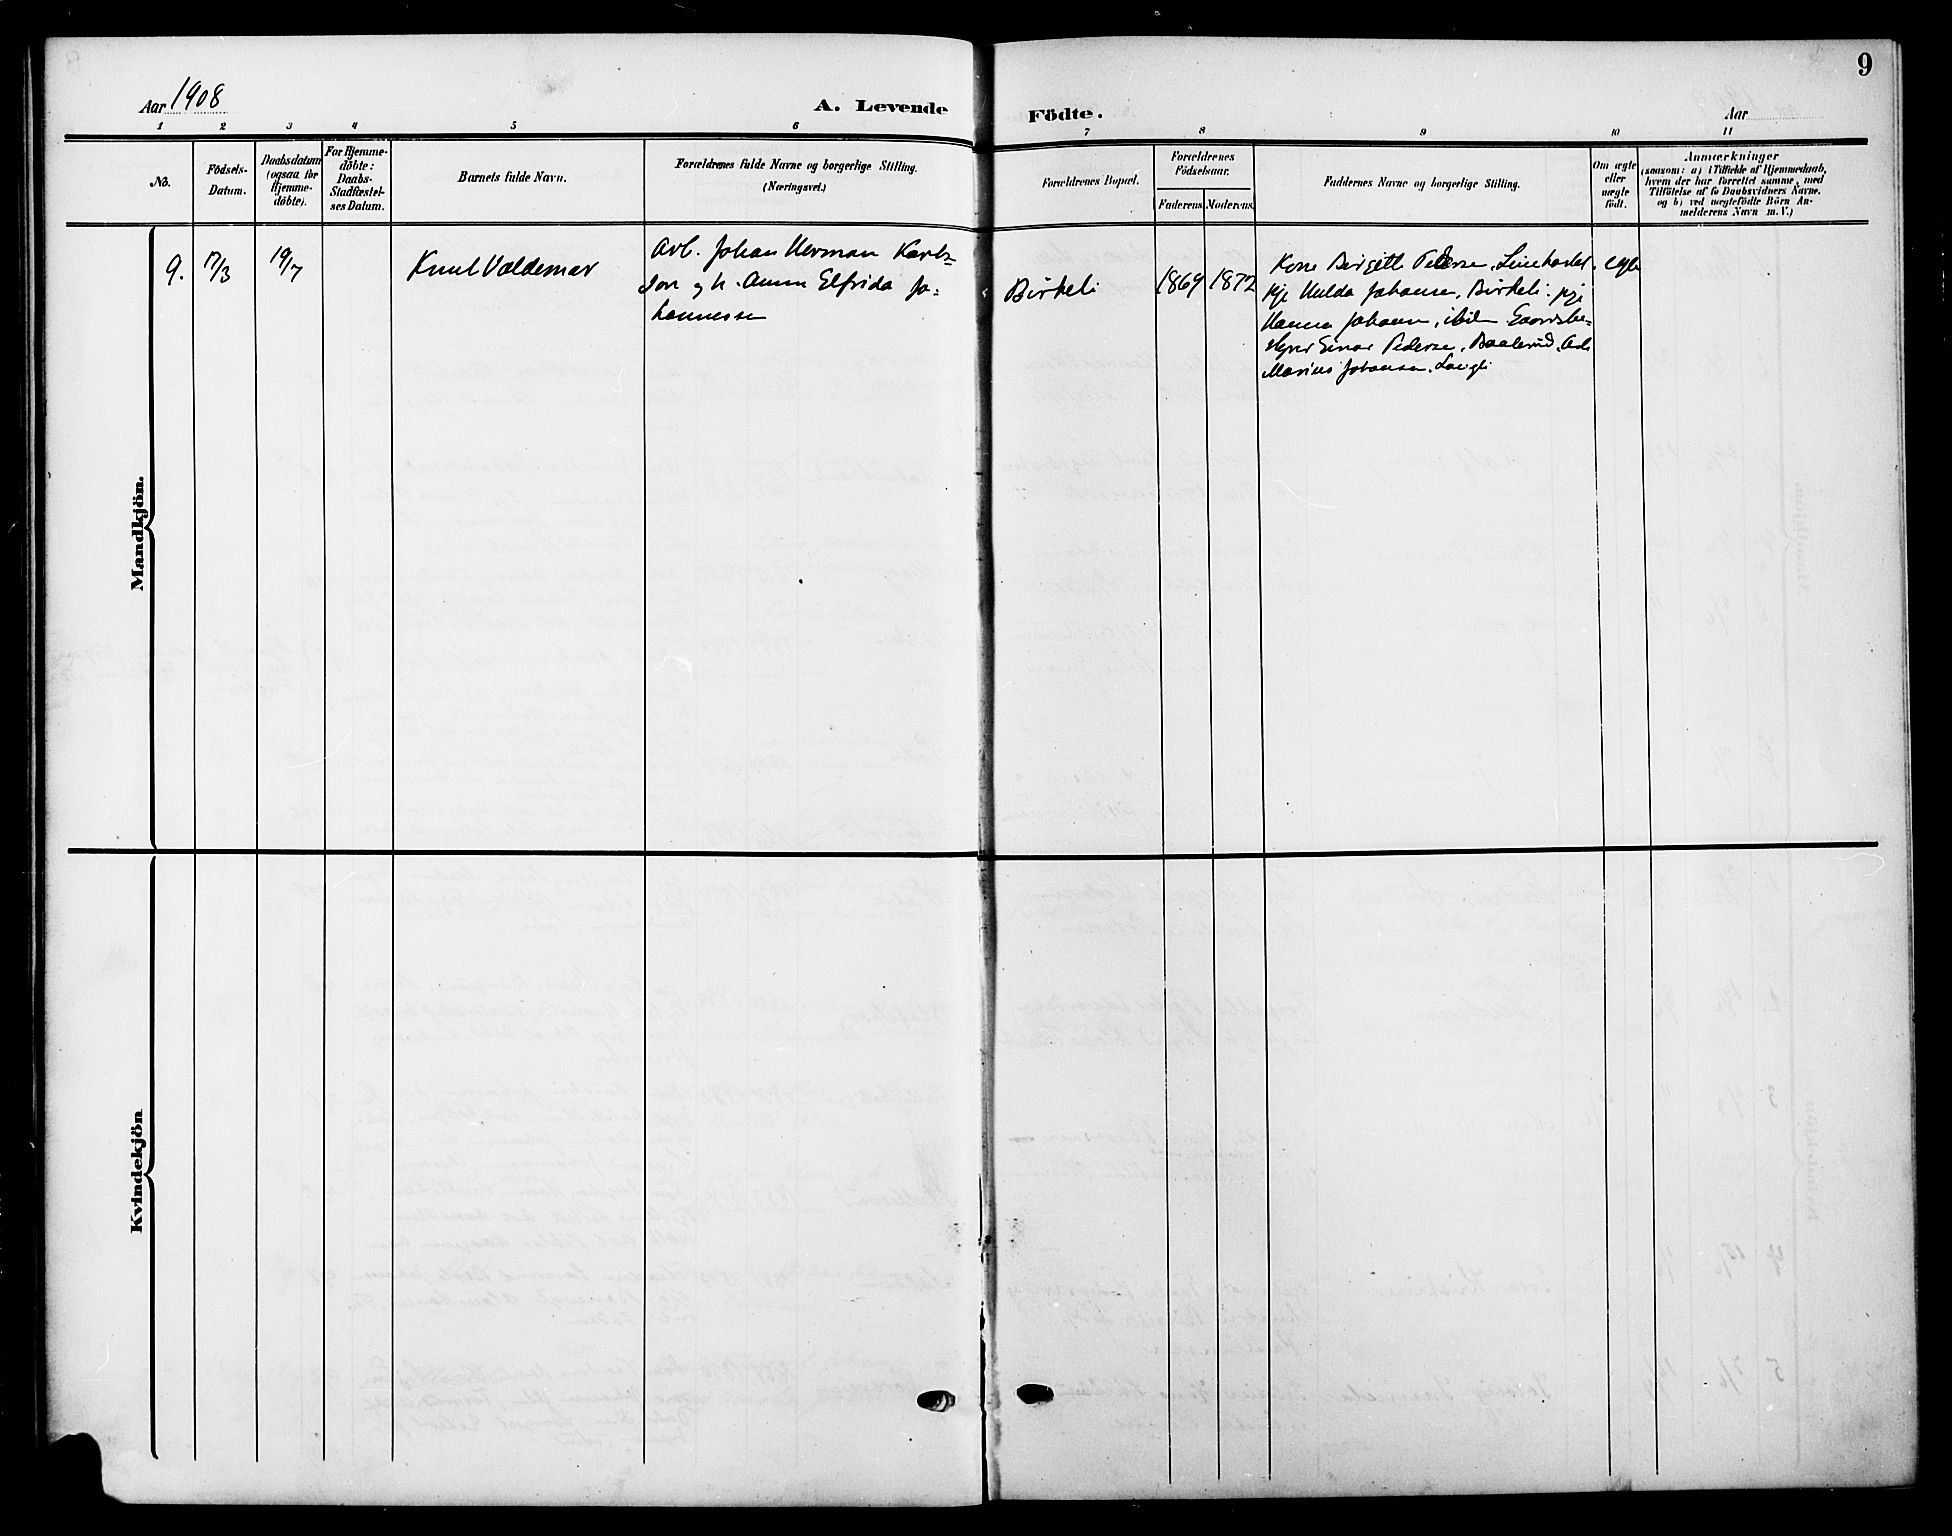 9
Aar 1908
A. Levende
Födte.
Aar
1 2 3 4 5 6 7 8 9 10 11
No.
Födsels-
Datum.
Daabsdatum
(ogsaa for
Hjemme-
döbte).
For Hjemme-
döbte:
Daabs-
Stadfæstel-
ses Datum.
Barnets fulde Navn.
Forældrenes fulde Navne og borgerlige Stilling.
(Næringsvei.)
Forældrenes Bopæl.
Forældrenes
Födselsaar.
Faderens. Moderens.
Faddernes Navne og borgerlige Stilling.
Om ægte
eller
uægte
födt.
Anmærkninger
(saasom: a) i Tilfælde af Hjemmedaab,
hvem der har forrettet samme, med
Tilföielse af to Daabsvidners Navne.
og b) ved uægtefödte Börn An-
melderens Navn m. V.)
Mandkjön.
9.
17/3
19/7
Knut Valdemar
Arb. Johan Herman Karls-
son og h. Anna Elfrida Jo-
hannesse
Birkeli
1869
1872
Kone Birgitte Pederse,
pige Hulda Johanse, Birkeli. pige
Hanna Johanse, ibid. Gaardsbe-
styrer Einar Pederse, Baalerud, Arb.
Marius Johansen, Langli
egte
Kvindekjön